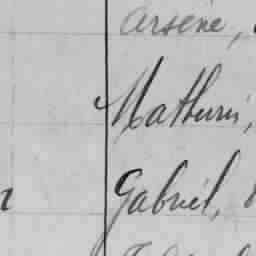 Arsène,
Mathurin,
Gabriel,